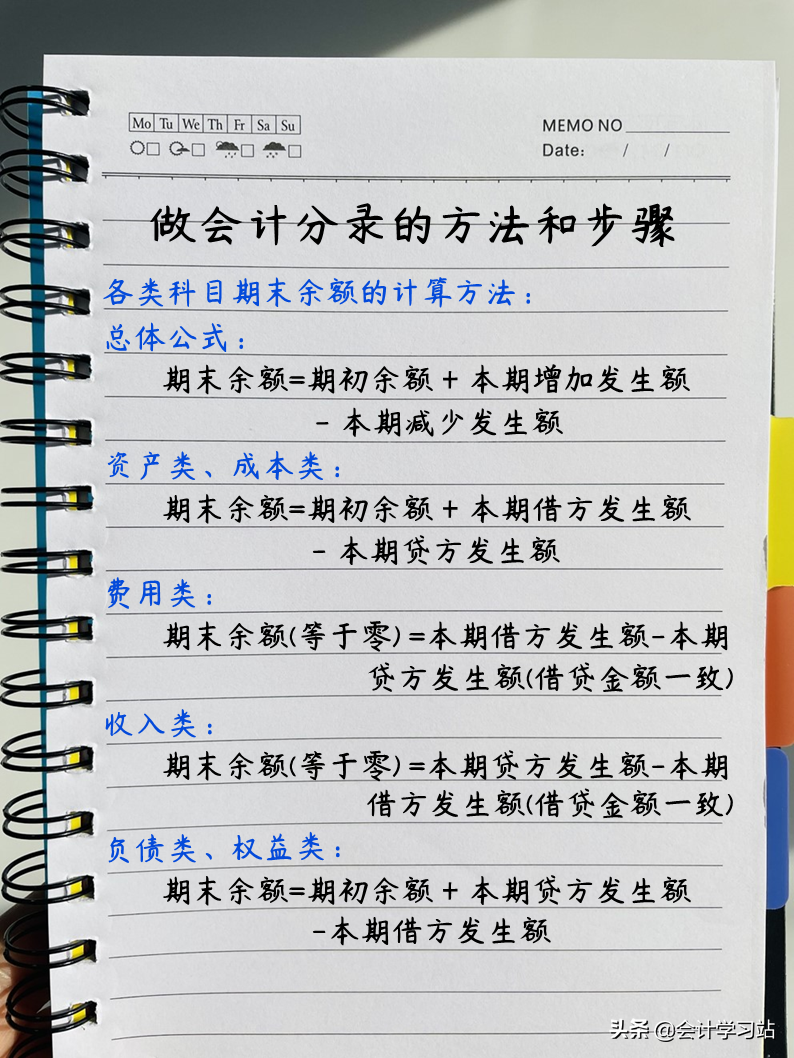 Mo Tu We Th Fr Sa Su
MEMO NO
Date: / /
做会计分录的方法和步骤
各类科目期末余额的计算方法：
总体公式：
期末余额=期初余额+本期增加发生额
-本期减少发生额
资产类、成本类：
期末余额=期初余额+本期借方发生额
-本期贷方发生额
费用类：
期末余额(等于零)=本期借方发生额-本期
贷方发生额(借贷金额一致)
收入类：
期末余额(等于零)=本期贷方发生额-本期
借方发生额(借贷金额一致)
负债类、权益类：
期末余额=期初余额+本期贷方发生额
-本期借方发生额
头条 @会计学习站